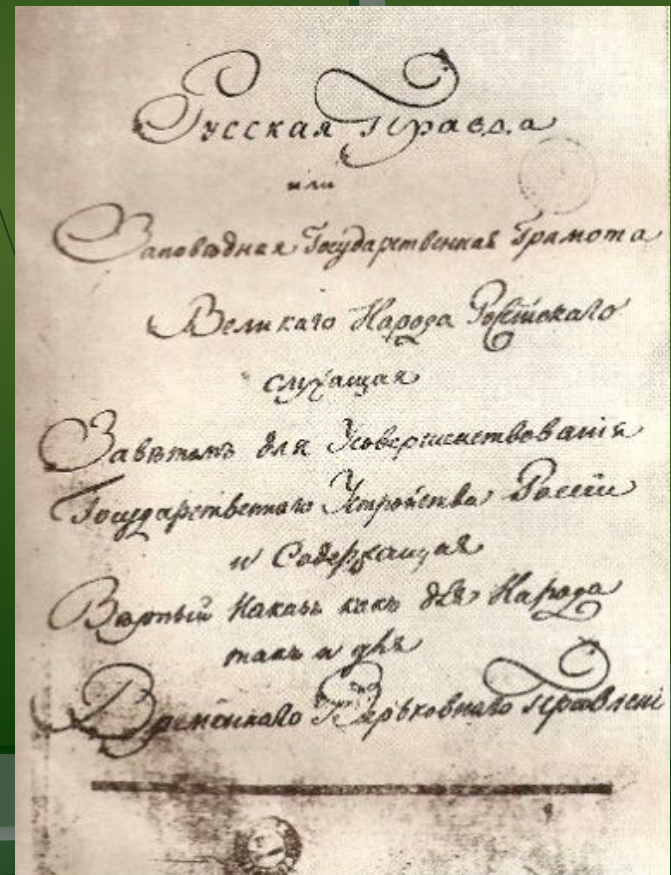 Русская Правда
или
Заповѣдная Государственная Грамота
Великаго Народа Россійскаго
служащая
Завѣтомъ для Усовершенствованія
Государственнаго Устройства Россіи
и Содержащая
Вѣрный Наказъ какъ для Народа
такъ и для
Временнаго Верьховнаго Правленi